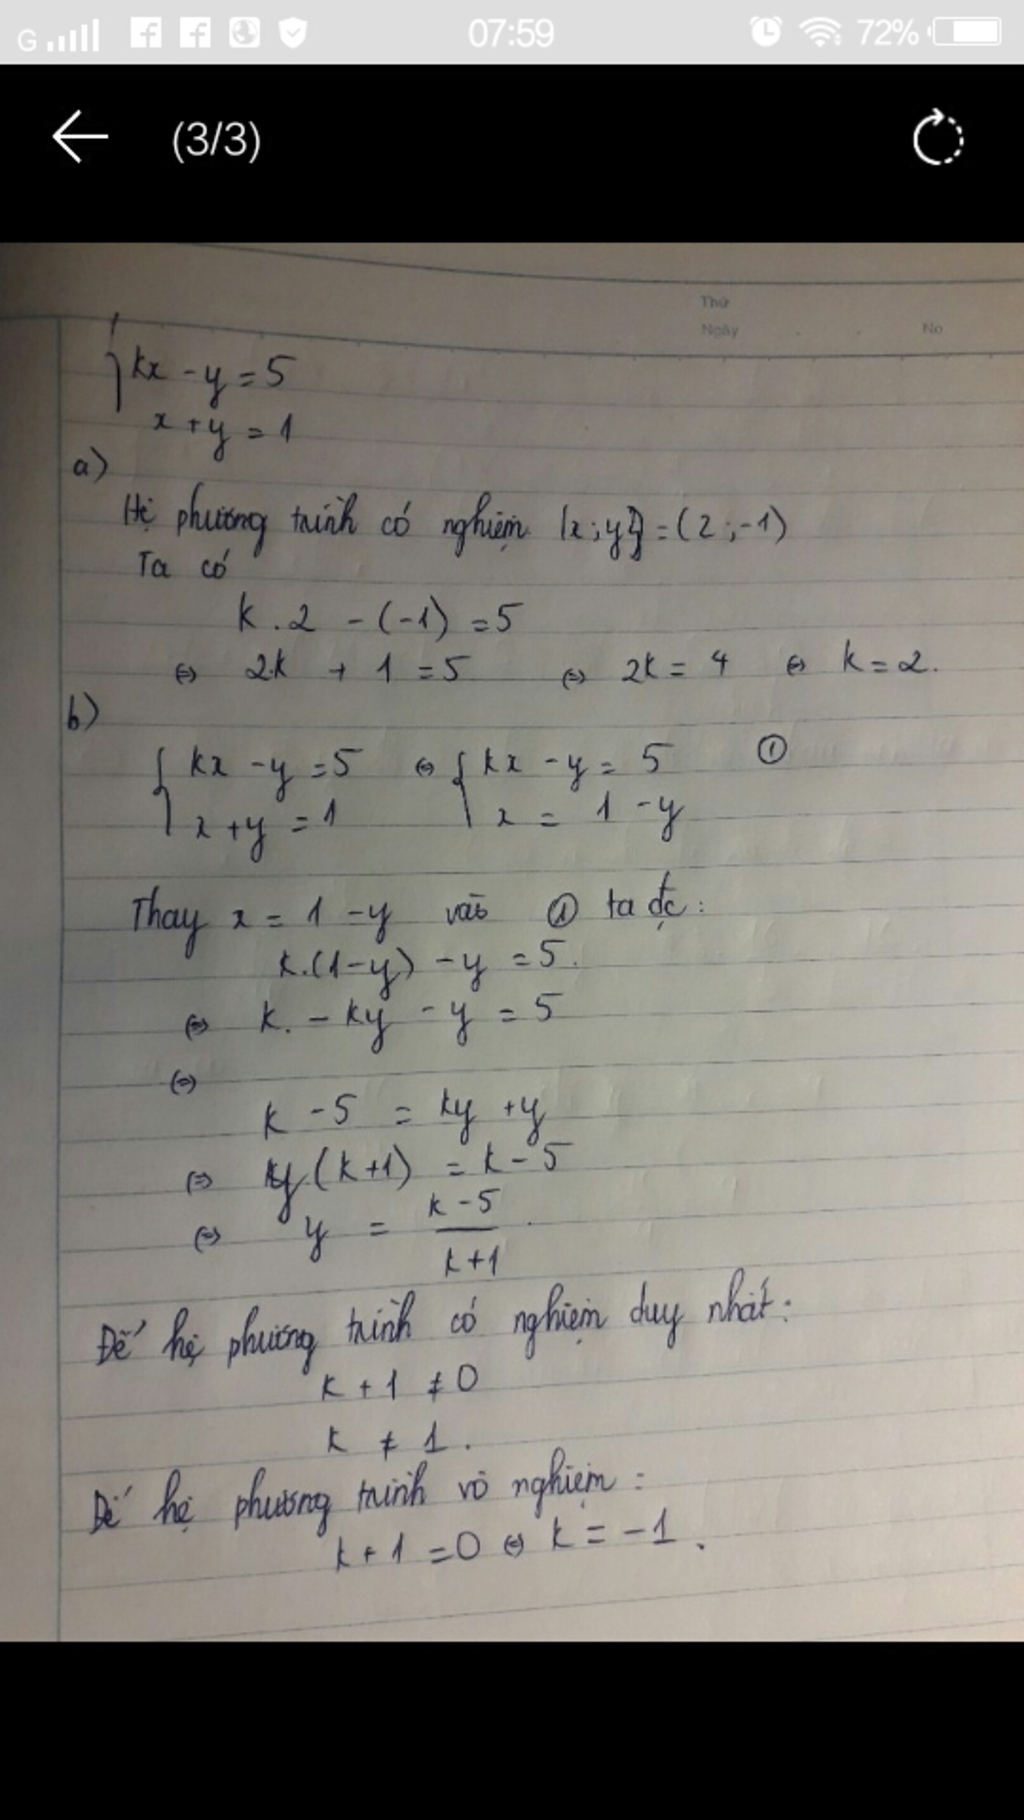 G 07:59 72%
(3/3)
Thứ
Ngày No
{kx - y = 5
x + y = 1
a)
Hệ phương trình có nghiệm {x;y} = (2;-1)
Ta có
k.2 - (-1) = 5
⇔ 2k + 1 = 5 ⇔ 2k = 4 ⇔ k = 2.
b)
{kx - y = 5 ⇔ {kx - y = 5 ①
x + y = 1 x = 1 - y
Thay x = 1 - y vào ① ta đc:
k.(1-y) - y = 5.
⇔ k. - ky - y = 5
⇔
k - 5 = ky + y
⇔ y(k+1) = k - 5
⇔ y = k - 5 / k + 1
Để hệ phương trình có nghiệm duy nhất:
k + 1 ≠ 0
k ≠ 1.
Để hệ phương trình vô nghiệm:
k + 1 = 0 ⇔ k = -1.